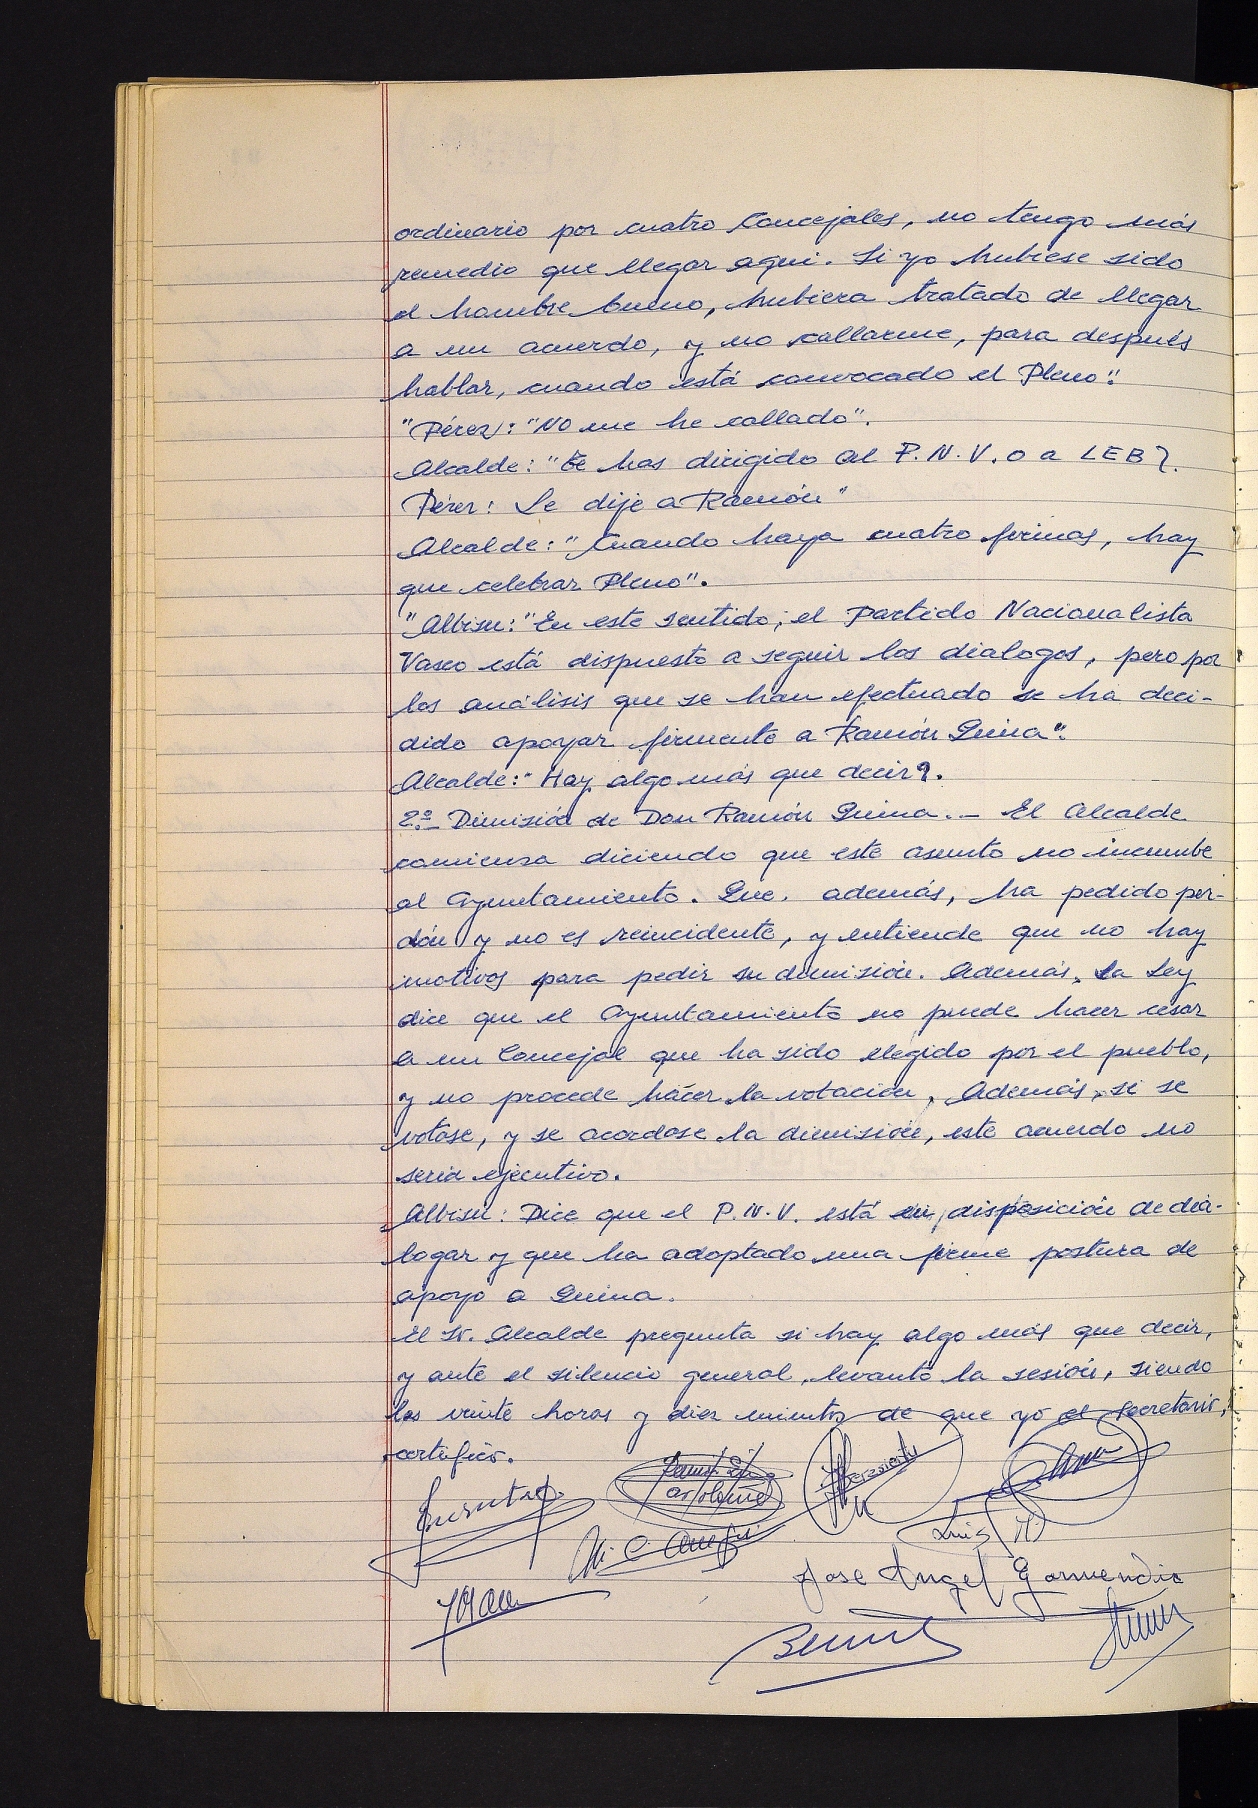 ordinario por cuatro Concejales, no tengo más
remedio que llegar aqui. Si yo hubiese sido
el hombre bueno, hubiera tratado de llegar
a un acuerdo, y no callarme, para después
hablar, cuando está convocado el Pleno".
"Pérez: "No me he callado".
Alcalde: "te has dirigido al P.N.V. o a LEB?.
Pérez: Le dije a Ramón"
Alcalde: "Cuando haya cuatro firmas, hay
que celebrar Pleno".
"Albisu: "En este sentido, el Partido Nacionalista
Vasco está dispuesto a seguir los dialogos, pero por
los análisis que se han efectuado se ha deci-
dido apoyar firmente a Ramón Guina".
Alcalde: "Hay algo más que decir?.
2º.- Dimisión de Don Ramón Guina.- El Alcalde
comienza diciendo que este asunto no incumbe
al Ayuntamiento. Que, además, ha pedido per-
dón y no es reincidente, y entiende que no hay
motivos para pedir su dimisión. Además, la Ley
dice que el Ayuntamiento no puede hacer cesar
a un Concejal que ha sido elegido por el pueblo,
y no procede hacer la votación. Además, si se
votase, y se acordase la dimisión, este acuerdo no
seria ejecutivo.
Albisu: Dice que el P.N.V. está en disposición de dia-
logar y que ha adoptado una firme postura de
apoyo a Guina.
El Sr. Alcalde pregunta si hay algo más que decir,
y ante el silencio general, levanto la sesión, siendo
las veinte horas y diez minutos de que yo el Secretario,
certifico.
Luis
Jose Angel Garmendia